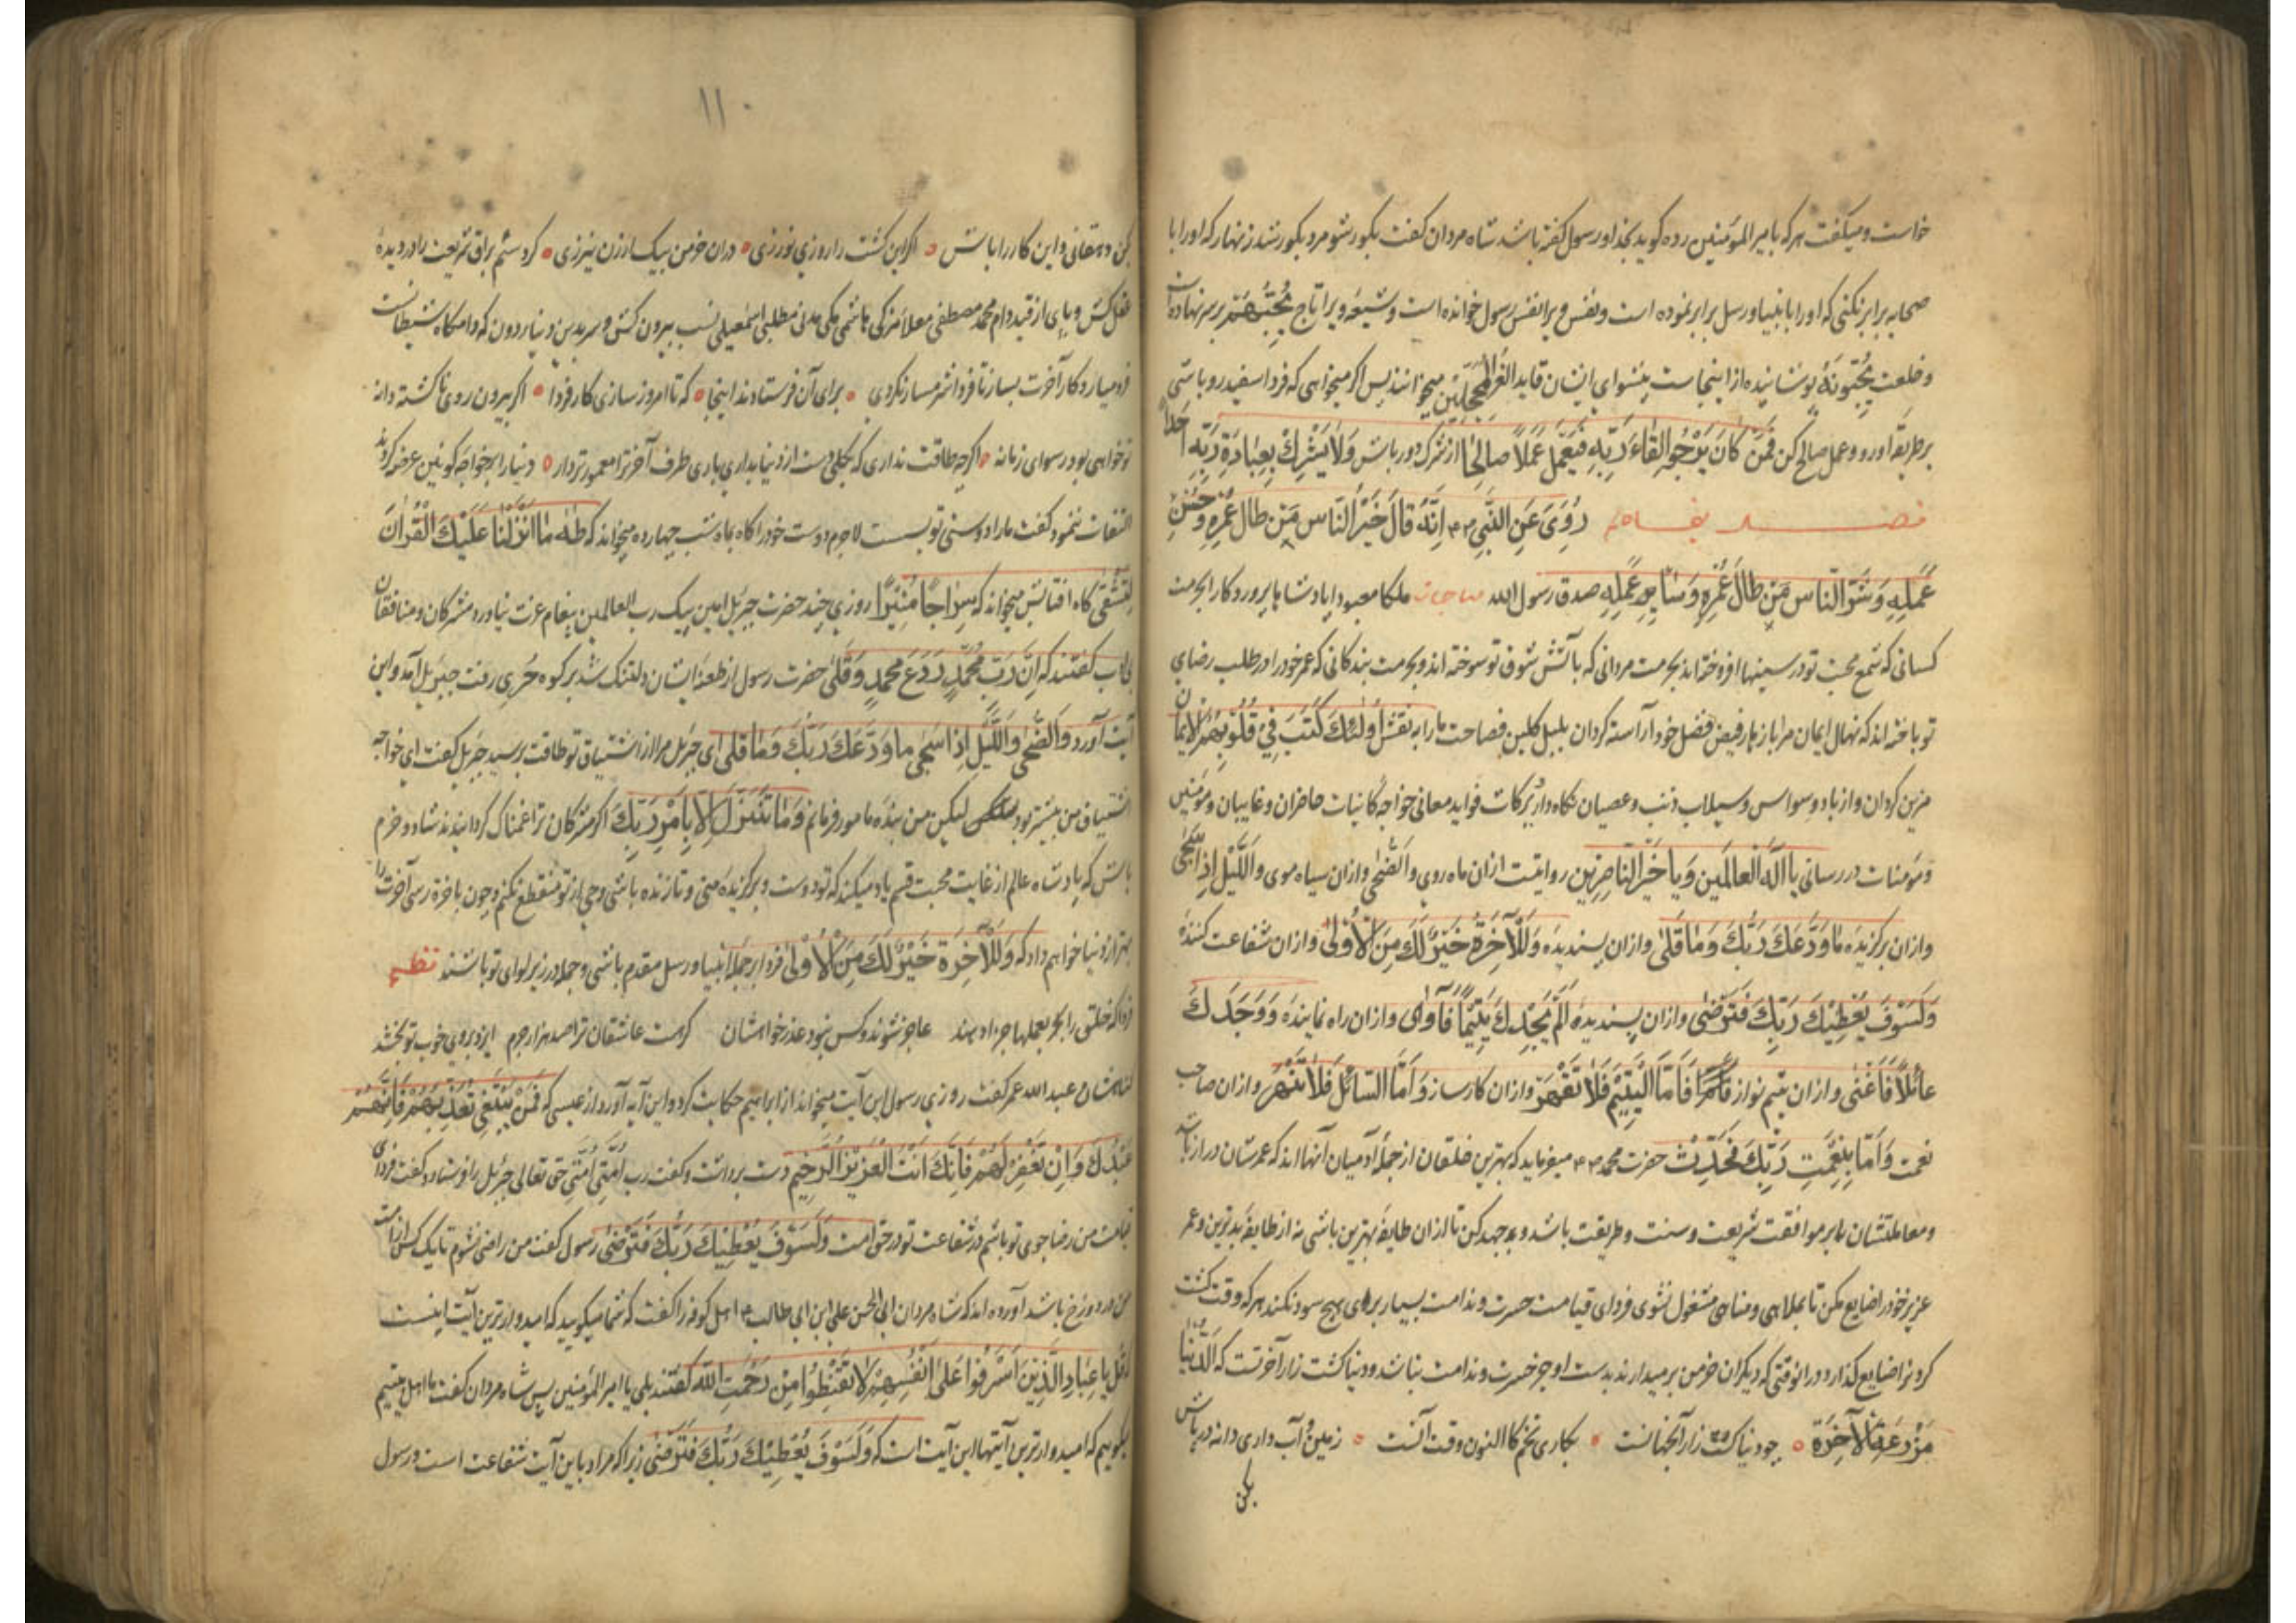 خواست و میگفت هر که با امیرالمؤمنین رده کوید بخدا و رسول گفته باشد شاه مردان گفت بکور شو مرد بکور شد زنهار که او را با
صحابه برابر نکنی که او را بانبیا و رسل برابر نموده است و نفس ویرا نفس رسول خوانده است و شیعه ویرا تاج یُحِبُّهُمْ بر سر نهاده
و خلعت یُحِبُّونَهُ پوشانیده از اینجاست پیشوای ایشان قاید الغر المحجلین میخوانند پس اگر میخواهی که فردا سفید رو باشی
بر طریقه او رو و عمل صالح کن فَمَنْ كَانَ يَرْجُوا لِقَاءَ رَبِّهِ فَلْيَعْمَلْ عَمَلاً صَالِحًا از شرک دور باش وَلَا يُشْرِكْ بِعِبَادَةِ رَبِّهِ أَحَدًا
رُوِيَ عَنِ النَّبِيِّ انَّهُ قَالَ خَيْرُ النَّاسِ مَنْ طَالَ عُمْرُهُ وَحَسُنَ
عَمَلُهُ وَشَرُّ النَّاسِ مَنْ طَالَ عُمْرُهُ وَسَاءَ عَمَلُهُ صدق رسول الله مناجات ملکا معبودا پادشاها پروردکارا بحرمت
کسانی که شمع محبت تو در سینها افروخته‌اند بحرمت مردانی که بآتش شوق تو سوخته اند و بحرمت بندکانی که عمر خود را در طلب رضای
تو باخته اند که نهال ایمان مرا از فیض فضل خود آراسته کردان بلبل کلبن فصاحت ما را به نقش اُولٰئِكَ كَتَبَ فِي قُلُوبِهِمُ الْإِيمَانَ
مزین کردان و از باد وسواس و سیلاب ذنب و عصیان نکاه دار برکات فواید معانی خواجه کاینات حاضران و غایبان و مؤمنین
و مؤمنات در رسانی یا الٰهَ الْعَالَمِينَ وَيَا خَيْرَ النَّاصِرِينَ روایتست ازان ماه روی وَالضُّحٰى و ازان سیاه موی وَاللَّيْلِ اِذَا سَجٰى
و ازان برکزیده مَا وَدَّعَكَ رَبُّكَ وَمَا قَلٰى و ازان پسندیده وَلَلْآخِرَةُ خَيْرٌ لَكَ مِنَ الْأُولٰى و ازان شفاعت کننده
وَلَسَوْفَ يُعْطِيكَ رَبُّكَ فَتَرْضٰى و ازان پسندیده اَلَمْ يَجِدْكَ يَتِيمًا فَآوٰى و ازان راه نماینده وَوَجَدَكَ
عَائِلًا فَأَغْنٰى و ازان یتیم نواز فَأَمَّا الْيَتِيمَ فَلَا تَقْهَرْ و ازان کارساز وَأَمَّا السَّائِلَ فَلَا تَنْهَرْ و ازان صاحب
نعمت وَأَمَّا بِنِعْمَتِ رَبِّكَ فَحَدِّثْ حضرت محمد میفرماید که بهترین خلقان از جمله آدمیان آنها اند که عمرشان دراز باشد
و معاملتشان بر موافقت شریعت و سنت و طریقت باشد و جهد کن تا ازان طایفه بهترین باشی نه از طایفه بدترین و عمر
عزیز خود را ضایع مکن تا بملاهی و مناهی مشغول نشوی فردای قیامت حسرت و ندامت بسیار بری هیچ سود نکند هر که وقت کشت
کردن را ضایع کذارد در آنوقتی که دیکران خرمن بر میدارند بدست او جز حسرت و ندامت نباشد و دنیا کشت زار آخرتست که اَلدُّنْيَا
مَزْرَعَةُ الْآخِرَةِ چو دنیا کشت زار آنجهانست بکاری تخم کاکنون وقت آنست زمین و آب داری دانه در پاش
بکن
۱۱۰
بکن دهقانی و این کار را باش اکر این کشت را روزی نورزی دران خرمن بیک ارزن نیرزی کرد سم براق شریعت را در دیده
کش و پای از قید دام محمد مصطفی معلا مزکی هاشمی مکی مدنی مطلبی اسمعیلی نسب بیرون کش و سر بدین دنیا دون که دامکاه شیطانست
فرو میار و کار آخرت بساز تا فردا شرمسار نکردی برای آن فرستادند اینجا که تا امروز سازی کار فردا اکر بیرون روی ناکشته دانه
تو خواهی بود رسوای زمانه اکر چه طاقت نداری که بکلی دست از دنیا بداری باری طرف آخرت معمورتر دار دنیا را بر خواجه کونین عرضه کردند
التفات ننمود و کفت ما را دوستی تو بست لاجرم دوست خود را کاه ماه شب چهارده میخواند که طٰهٰ مَا أَنْزَلْنَا عَلَيْكَ الْقُرْاٰنَ
لِتَشْقٰى کاه آفتابش میخواند که سِرَاجًا مُنِيرًا روزی چند حضرت جبرئیل امین پیک رب العالمین پیغام عزت نیاورد مشرکان و منافقان
کفتند که اِنَّ رَبَّ مُحَمَّدٍ وَدَعَ مُحَمَّدًا وَقَلٰى حضرت رسول از طعنه ایشان دلتنک شد بر کوه حری رفت جبرئیل آمد و این
آیت آورد وَالضُّحٰى وَاللَّيْلِ إِذَا سَجٰى مَا وَدَّعَكَ رَبُّكَ وَمَا قَلٰى ای جبرئیل مرا از اشتیاق تو طاقت برسید جبرئیل کفت ای خواجه
اشتیاق من بیشتر بود لیکن من بنده مامور فرمانم وَمَا نَتَنَزَّلُ إِلَّا بِأَمْرِ رَبِّكَ اکر مشرکان ترا غمناک کردانیدند شاد و خرم
باش که پادشاه عالم از غایت محبت قسم یاد میکند که تو دوست و برکزیده منی و تا زنده باشی وحی از تو منقطع نکنم و چون بآخرت رسی آخرت را
بهتر از دنیا خواهم داد که وَلَلْآخِرَةُ خَيْرٌ لَكَ مِنَ الْأُولٰى فردا بر جمله انبیا و رسل مقدم باشی و جمله در زیر لوای تو باشند نظم
فردا که خلق را بعملها جزا دهند عاجز شوند و کس نبود عذر خواهشان کرهست عاشقان ترا صد هزار جرم ایزد بروی خوب تو بخشد
کناهشان عبد الله عمر کفت روزی رسول این آیت میخواند از ابراهیم حکایت کرد و این آیه آورد از عیسی که
عِبَادُكَ وَإِنْ تَغْفِرْ لَهُمْ فَإِنَّكَ أَنْتَ الْعَزِيزُ الرَّحِيمُ دست برداشت و کفت رب اُمَّتِي اُمَّتِي حق تعالی جبرئیل را فرستاد و کفت فردای
قیامت من رضا جوی تو باشم در شفاعت تو در حق امت وَلَسَوْفَ يُعْطِيكَ رَبُّكَ فَتَرْضٰى رسول کفت من راضی نشوم تا یک کس از امت
من در دوزخ باشد آورده اند که شاه مردان ابی الحسن علی ابن ابی طالب اهل کوفه را کفت که شما میکویید که امیدوارترین آیت اینست
قُلْ يَا عِبَادِيَ الَّذِينَ أَسْرَفُوا عَلٰى أَنْفُسِهِمْ لَا تَقْنَطُوا مِنْ رَحْمَتِ اللّٰهِ کفتند بلی یا امیر المؤمنین پس شاه مردان کفت ما اهل بیتیم
میکوییم که امیدوارترین آیتها این آیت است که وَلَسَوْفَ يُعْطِيكَ رَبُّكَ فَتَرْضٰى زیرا که مراد باین آیت شفاعت است و رسول